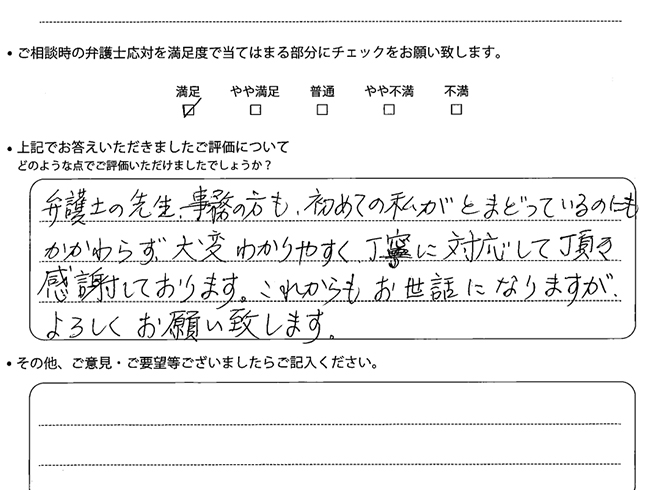 • ご相談時の弁護士応対を満足度で当てはまる部分にチェックをお願い致します。
満足 やや満足 普通 やや不満 不満
• 上記でお答えいただきましたご評価について
どのような点でご評価いただけましたでしょうか？
弁護士の先生、事務の方も、初めての私がとまどっているのにも
かかわらず、大変わかりやすく、丁寧に対応して頂き
感謝しております。これからもお世話になりますが、
よろしくお願い致します。
• その他、ご意見・ご要望等ございましたらご記入ください。